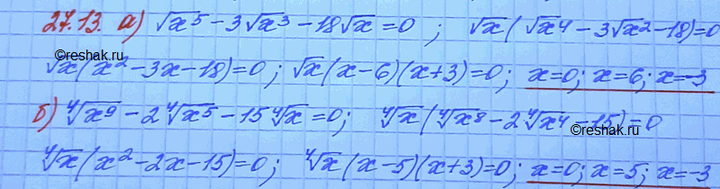 27.13. а) √x⁵ - 3√x³ - 18√x = 0 ; √x(√x⁴ - 3√x² - 18) = 0
reshak.ru
√x(x² - 3x - 18) = 0; √x(x - 6)(x + 3) = 0; x = 0; x = 6; x = -3
б) ⁴√x⁹ - 2⁴√x⁵ - 15⁴√x = 0; ⁴√x(⁴√x⁸ - 2⁴√x⁴ - 15) = 0
reshak.ru
⁴√x(x² - 2x - 15) = 0; ⁴√x(x - 5)(x + 3) = 0; x = 0; x = 5; x = -3